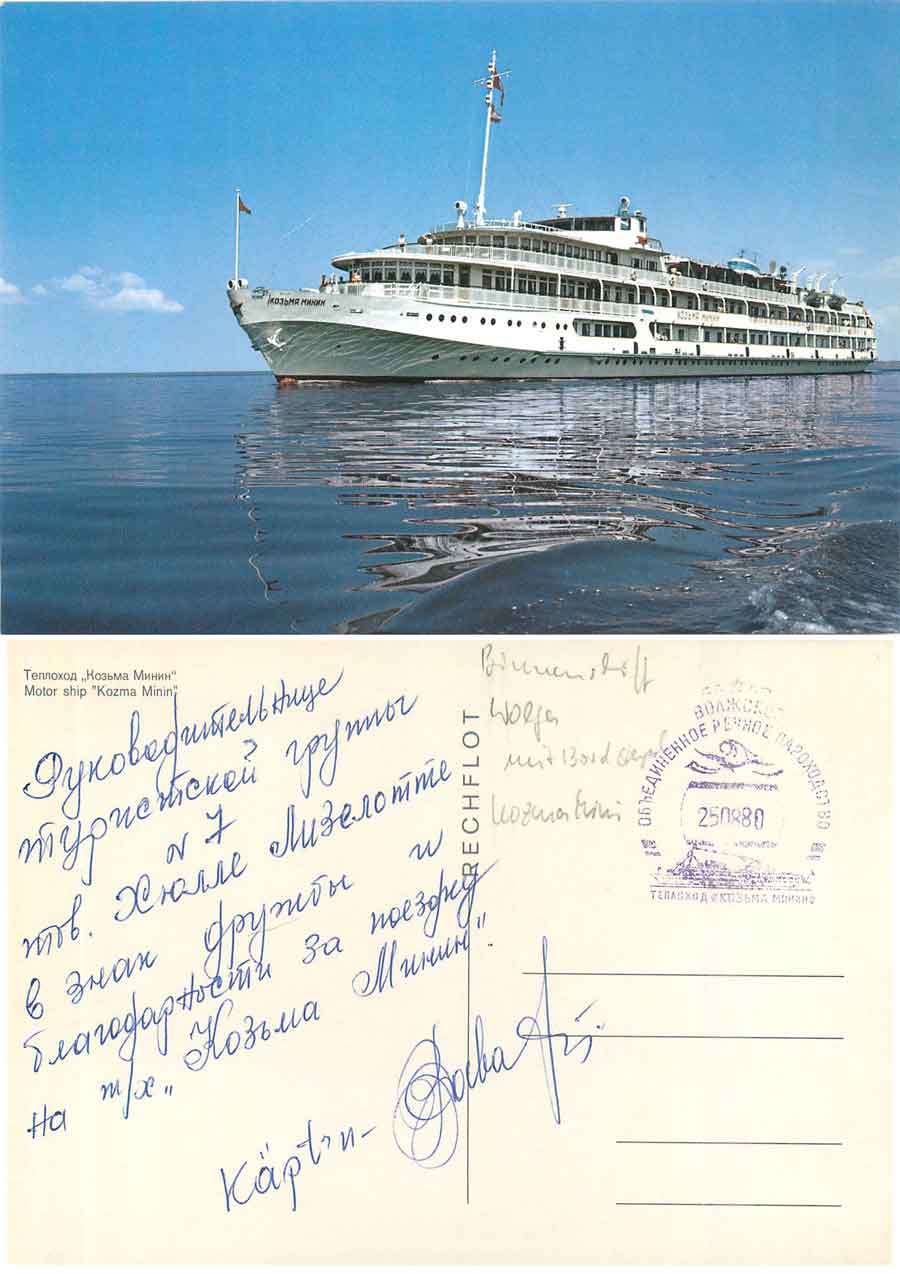 КОЗЬМА МИНИН
КОЗЬМА МИНИН
Теплоход „Козьма Минин“
Motor ship "Kozma Minin"
Руководительнице
туристской группы
N 7
тов. Хюлле Лизелотте
в знак дружбы и
благодарности за поездку
на т/х „Козьма Минин"
Käpt'n-
RECHFLOT
Wolga
mit Bord
ВОЛЖСКОЕ
ОБЪЕДИНЕННОЕ РЕЧНОЕ ПАРОХОДСТВО
250880
ТЕПЛОХОД «КОЗЬМА МИНИН»